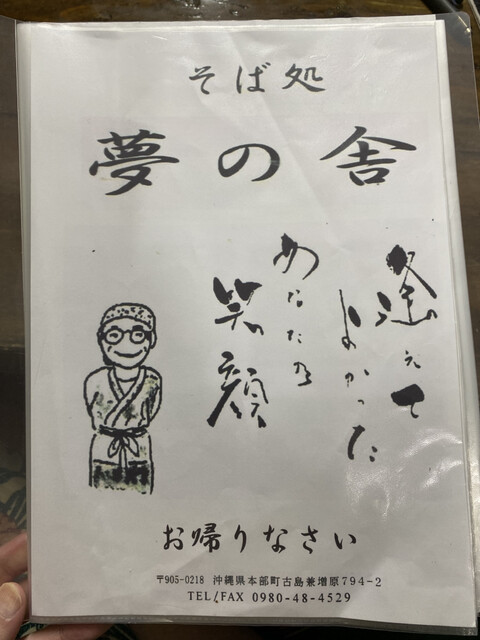 そば処
夢の舎
逢えて
よかった
あなたの
笑顔
お帰りなさい
〒905-0218 沖縄県本部町古島兼増原794-2
TEL/FAX 0980-48-4529